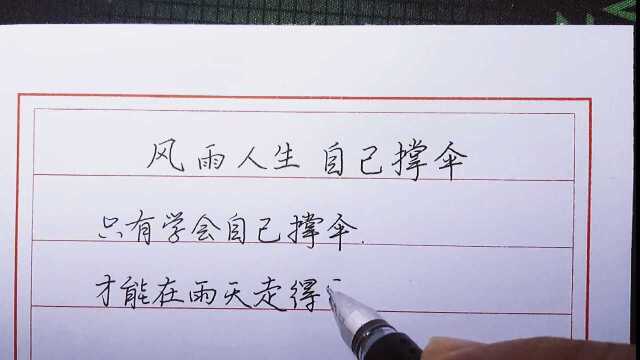 风雨人生 自己撑伞
只有学会自己撑伞.
才能在雨天走得